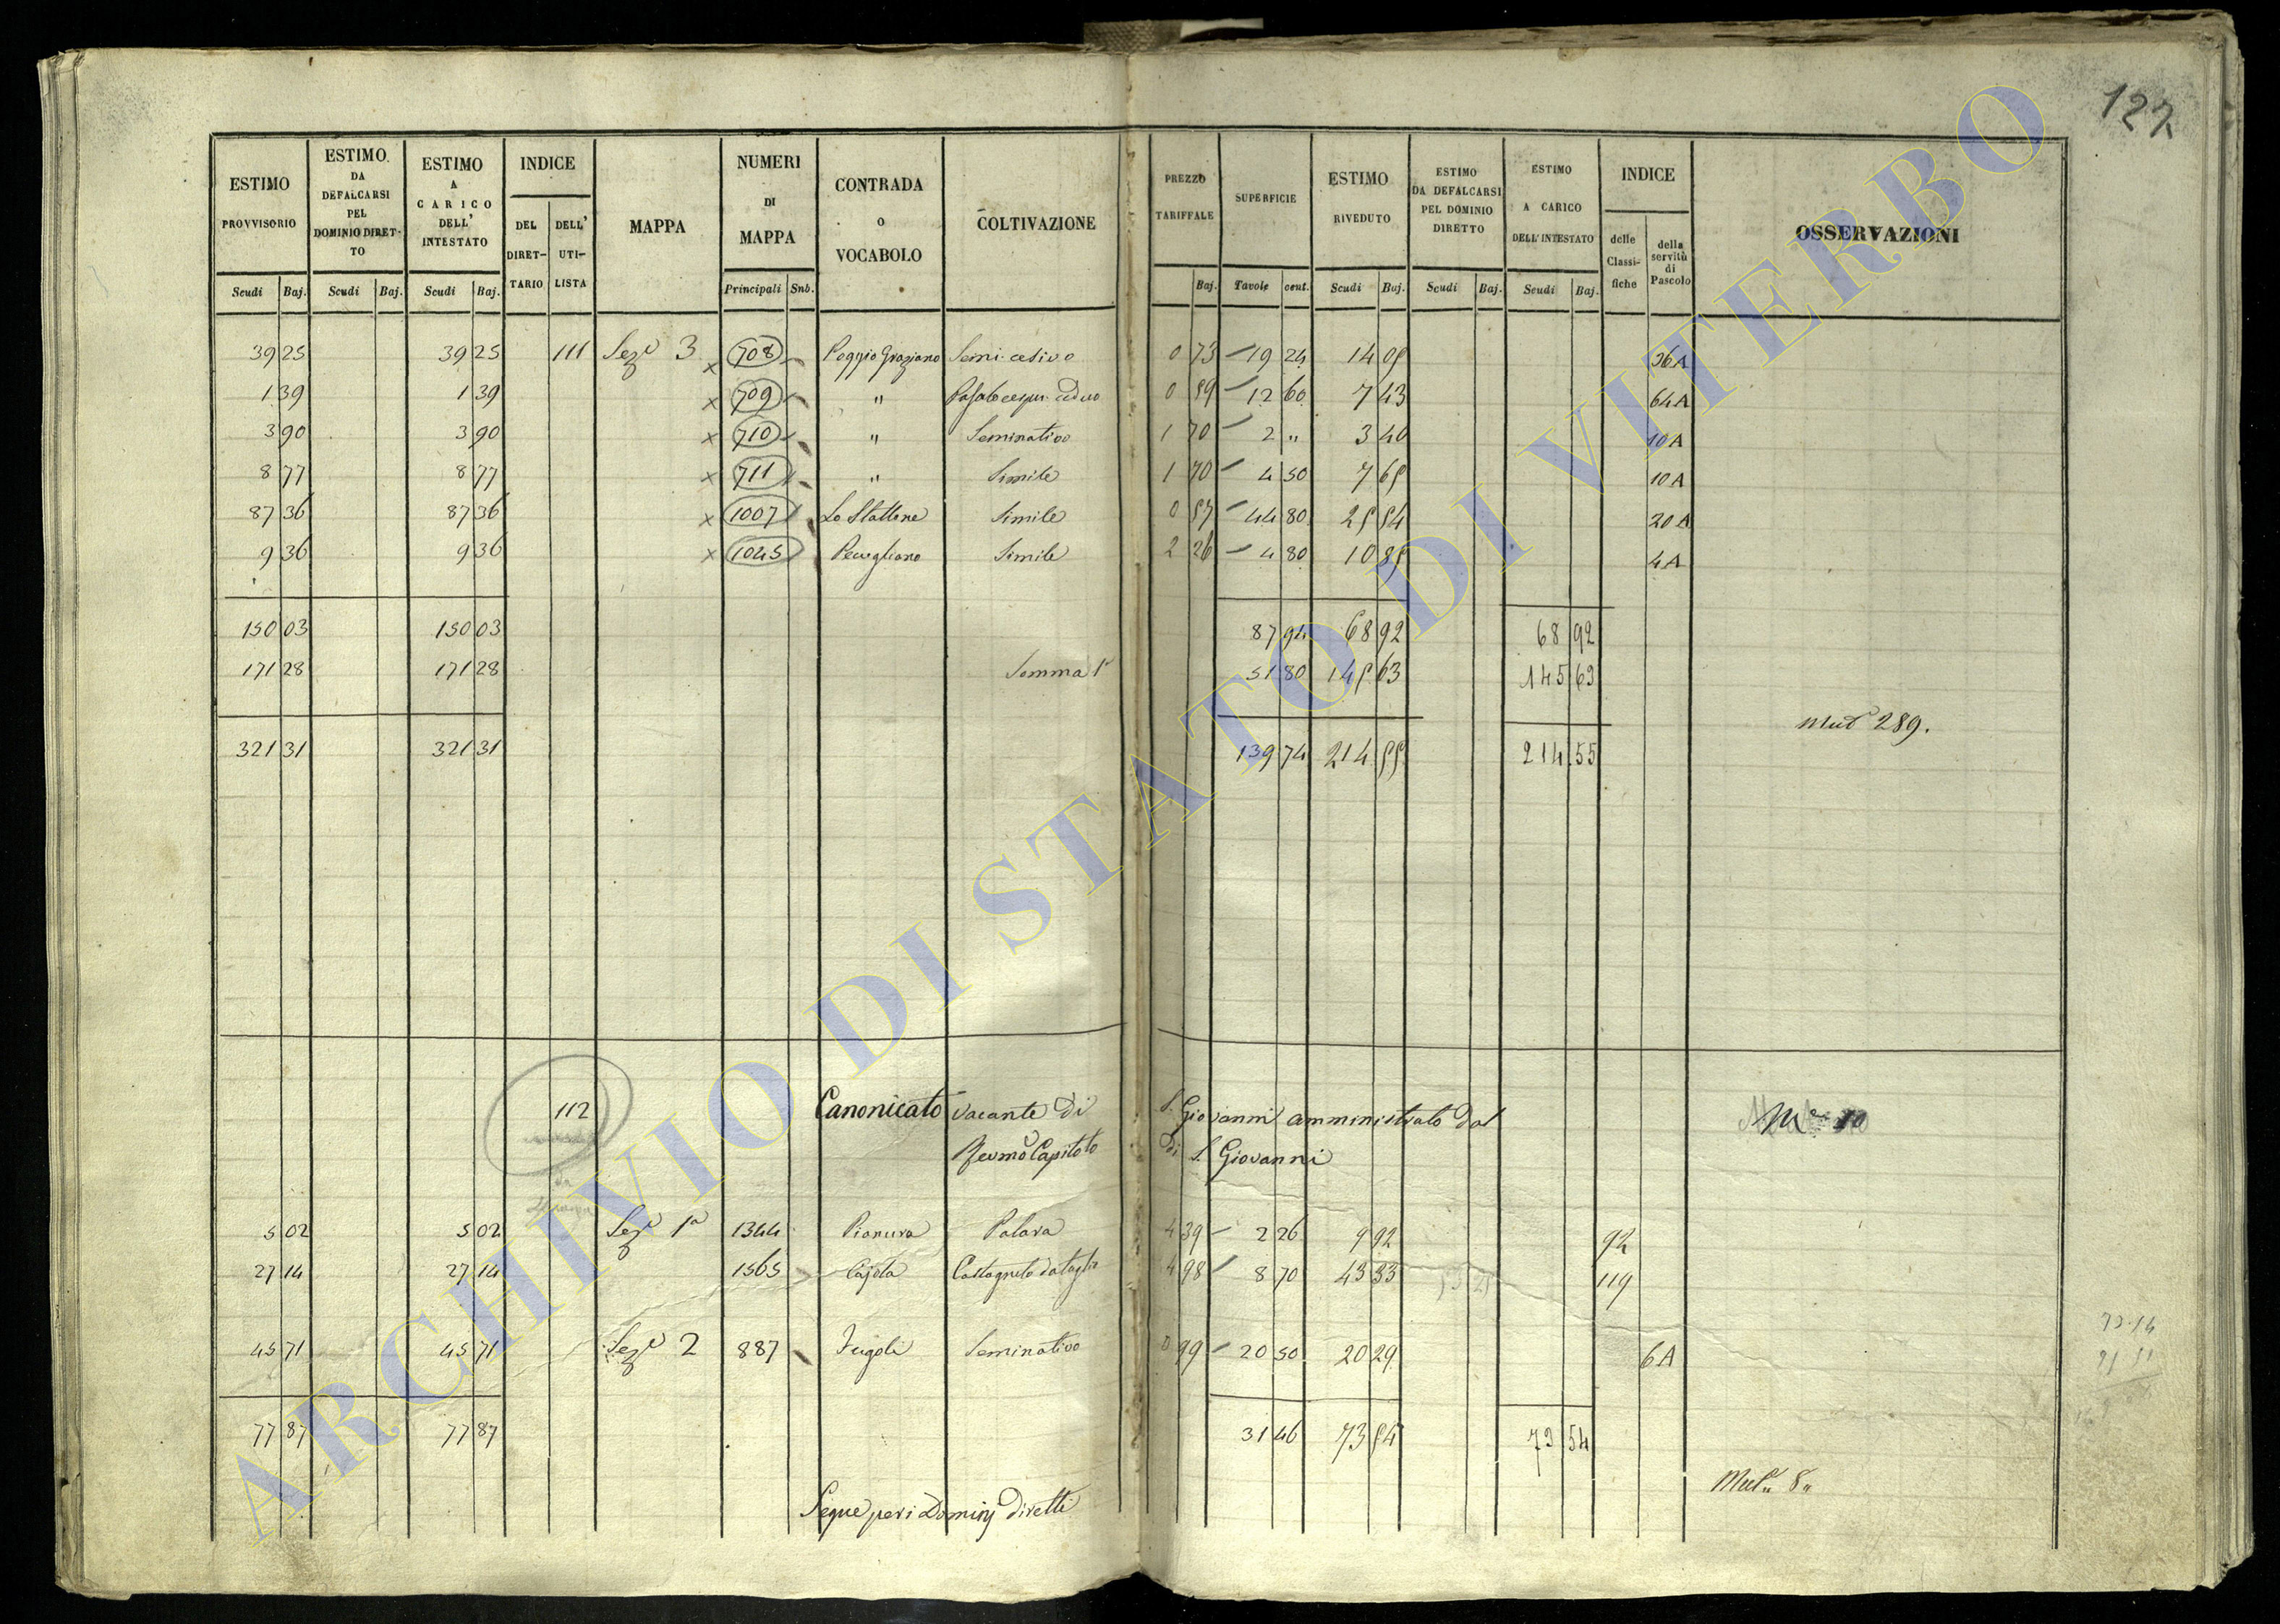 127
ESTIMO PROVVISORIO Scudi Baj.
ESTIMO DA DEFALCARSI PEL DOMINIO DIRETTO Scudi Baj.
ESTIMO A CARICO DELL' INTESTATO Scudi Baj.
INDICE DEL DIRETTARIO DELL' UTILISTA
MAPPA
NUMERI DI MAPPA Principali Sub.
CONTRADA O VOCABOLO
COLTIVAZIONE
PREZZO TARIFFALE Baj.
SUPERFICIE Tavole cent.
ESTIMO RIVEDUTO Scudi Baj.
ESTIMO DA DEFALCARSI PEL DOMINIO DIRETTO Scudi Baj.
ESTIMO A CARICO DELL' INTESTATO Scudi Baj.
INDICE delle Classifiche della servitù di Pascolo
OSSERVAZIONI
39 25 39 25 111 Sez.e 3 x 708 Poggio Graziano Semi. cesivo 0 73 19 24 14 05 36A
1 39 1 39 x 709 " cespu. ceduo 0 59 12 60 7 43 64A
3 90 3 90 x 710 " Seminativo 1 70 2 " 3 40 10A
8 77 8 77 x 711 " Simile 1 70 4 50 7 65 10A
87 36 87 36 x 1007 Lo Stallone Simile 0 57 44 80 25 54 20A
9 36 9 36 x 1045 Simile 2 26 4 80 10 85 4A
150 03 150 03 87 94 68 92 68 92
171 28 171 28 Somma 1a 51 80 145 63 145 63
Mut 289.
321 31 321 31 139 74 214 55 214 55
112 Canonicato vacante di S. Giovanni amministrato dal 10
Rev.mo Capitolo di S. Giovanni
5 02 5 02 Sez.e 1a 1344 Pianura 4 39 2 26 9 92 92
27 14 27 14 1565 Cajola Castagneto da taglio 4 98 8 70 43 33 119
45 71 45 71 Sez.e 2 887 Seminativo 0 99 20 50 20 29 6A
77 87 77 87 31 46 73 54 73 54
Segue per i Dominj diretti
Mut.. 8..
ARCHIVIO DI STATO DI VITERBO